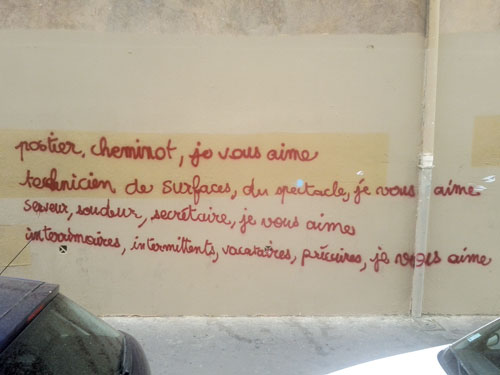 postier, cheminot, je vous aime
technicien de surfaces, du spectacle, je vous aime
serveur, soudeur, secrétaire, je vous aime
intérimaires, intermittents, vacataires, précaires, je vous aime